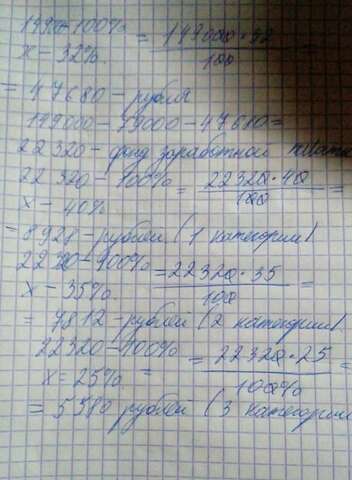 149т - 100% = 149000 · 32
x - 32% 100
= 47680 - рубля
149000 - 79000 - 47680 =
22320 - фонд заработной платы
22 320 - 100% = 22320 · 40 =
x - 40% 100
= 8928 - рублей (1 категории)
22320 - 100% = 22320 · 35 =
x - 35% 100
= 7812 - рублей (2 категории)
22320 - 100% = 22320 · 25 =
x = 25% 100%
= 5580 рублей (3 категории